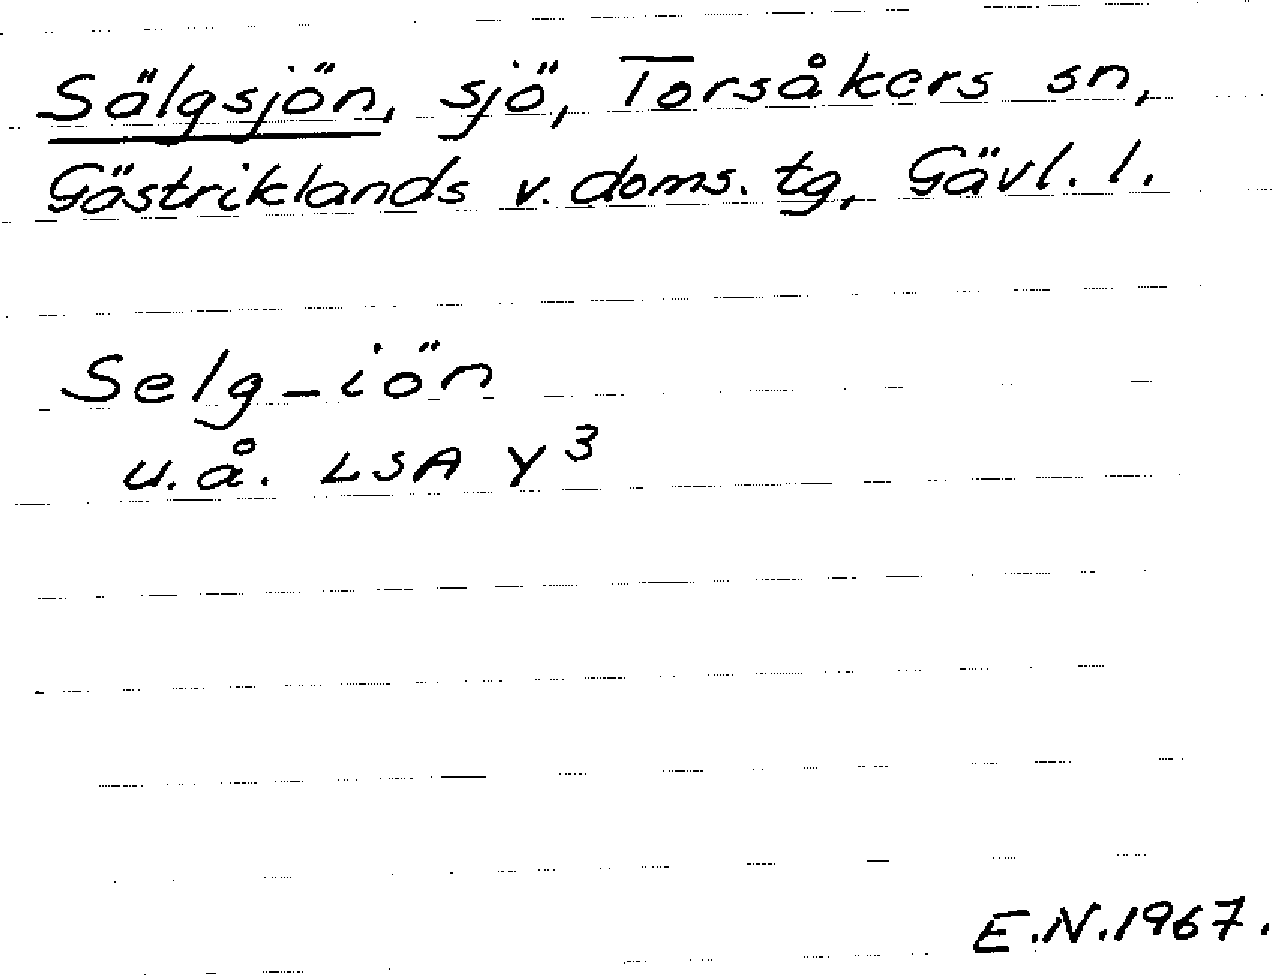 Sälgsjön, sjö, Torsåkers sn,
Gästriklands v. doms. tg, Gävl. l.
Selg-iön
u.å. LSA Y³
E.N.1967.